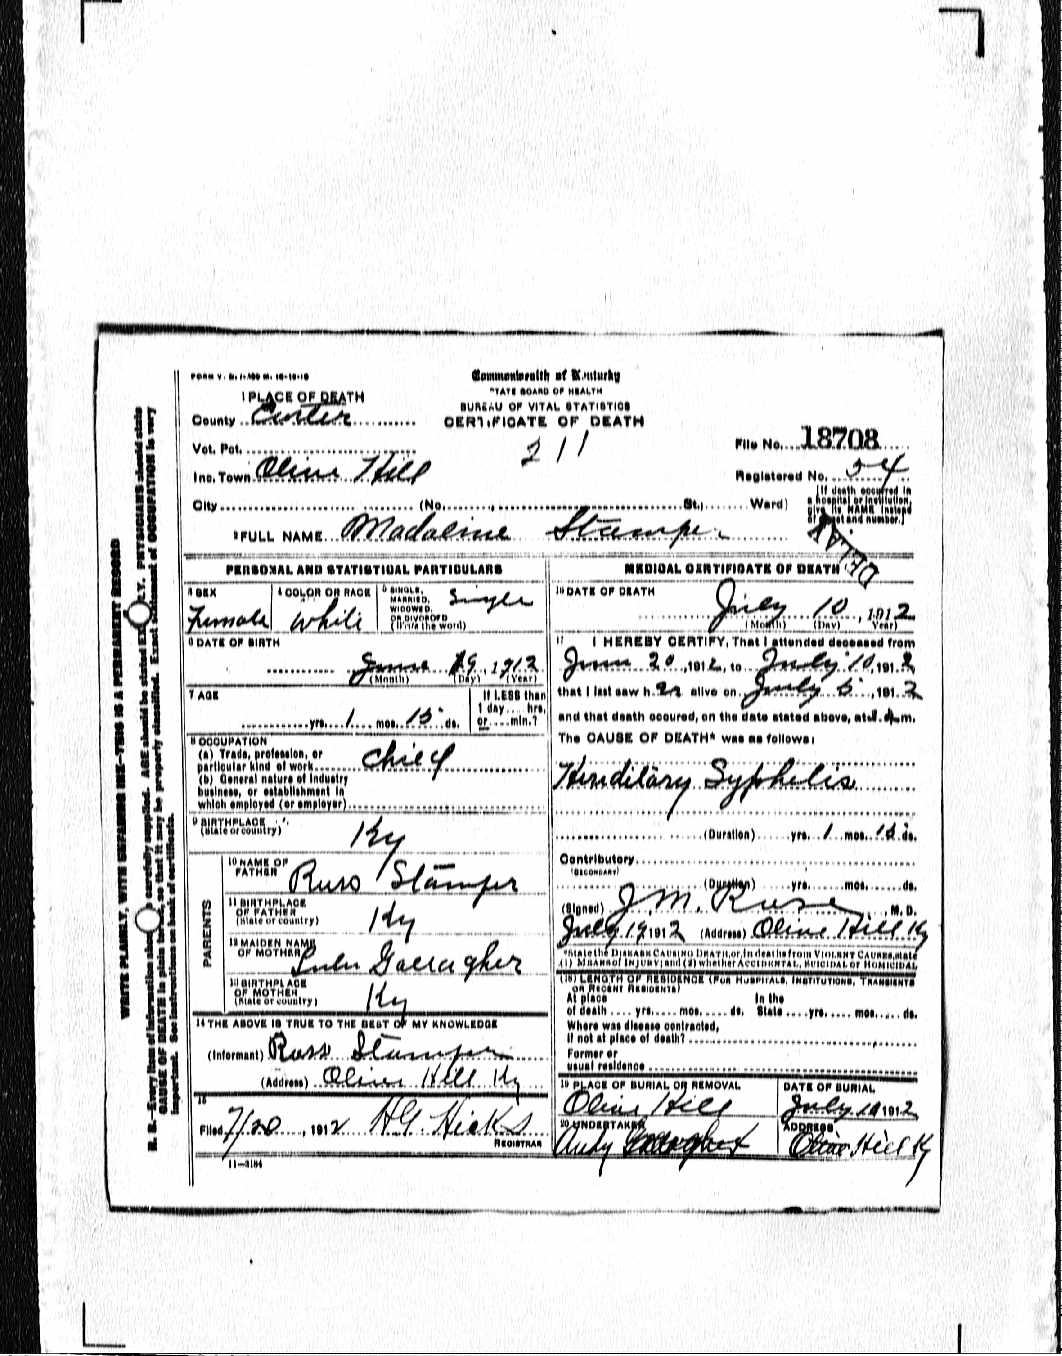 FORM V. S. 1-A
Commonwealth of Kentucky
STATE BOARD OF HEALTH
BUREAU OF VITAL STATISTICS
CERTIFICATE OF DEATH
1 PLACE OF DEATH
County Carter
Vot. Pct.
211
File No. 18708
Inc. Town Olive Hill
Registered No. 54
City (No. , St.; Ward)
[If death occurred in a hospital or institution, give its NAME instead of street and number.]
2 FULL NAME Madaline Stamper
DELAY
PERSONAL AND STATISTICAL PARTICULARS
3 SEX
Female
4 COLOR OR RACE
White
5 SINGLE, MARRIED, WIDOWED, OR DIVORCED (Write the word)
Single
6 DATE OF BIRTH
June 19, 1912
(Month) (Day) (Year)
7 AGE
yrs. 1 mos. 15 ds.
If LESS than
1 day.... hrs.
or .... min.?
8 OCCUPATION
(a) Trade, profession, or
particular kind of work Child
(b) General nature of industry
business, or establishment in
which employed (or employer)
9 BIRTHPLACE
(State or country)
Ky
PARENTS
10 NAME OF FATHER
Russ Stamper
11 BIRTHPLACE OF FATHER
(State or country)
Ky
12 MAIDEN NAME OF MOTHER
Gallagher
13 BIRTHPLACE OF MOTHER
(State or country)
Ky
14 THE ABOVE IS TRUE TO THE BEST OF MY KNOWLEDGE
(Informant) Russ Stamper
(Address) Olive Hill Ky
15
Filed 7/20, 1912 H.G. Hicks
REGISTRAR
11-3184
MEDICAL CERTIFICATE OF DEATH
16 DATE OF DEATH
July 10, 1912
(Month) (Day) (Year)
17 I HEREBY CERTIFY, That I attended deceased from
June 20, 1912, to July 10, 1912
that I last saw her alive on July 5, 1912
and that death occured, on the date stated above, at m.
The CAUSE OF DEATH* was as follows:
Heriditary Syphelis
(Duration) yrs. 1 mos. 15 ds.
Contributory
(SECONDARY)
(Duration) yrs. mos. ds.
(Signed) J.M. Rose, M. D.
July 19 1912 (Address) Olive Hill Ky
*State the DISEASE CAUSING DEATH, or, in deaths from VIOLENT CAUSES, state
(1) MEANS OF INJURY; and (2) whether ACCIDENTAL, SUICIDAL OR HOMICIDAL
(18) LENGTH OF RESIDENCE (FOR HOSPITALS, INSTITUTIONS, TRANSIENTS
OR RECENT RESIDENTS)
At place In the
of death .... yrs. .... mos. .... ds. State .... yrs. .... mos. .... ds.
Where was disease contracted,
if not at place of death?
Former or
usual residence
19 PLACE OF BURIAL OR REMOVAL
Olive Hill
DATE OF BURIAL
July 10 1912
20 UNDERTAKER
Andy Gallagher
ADDRESS
Olive Hill Ky
WRITE PLAINLY, WITH UNFADING INK—THIS IS A PERMANENT RECORD
N. B.—Every item of information should be carefully supplied. AGE should be stated EXACTLY. PHYSICIANS should state
CAUSE OF DEATH in plain terms, so that it may be properly classified. Exact statement of OCCUPATION is very
important. See instructions on back of certificate.